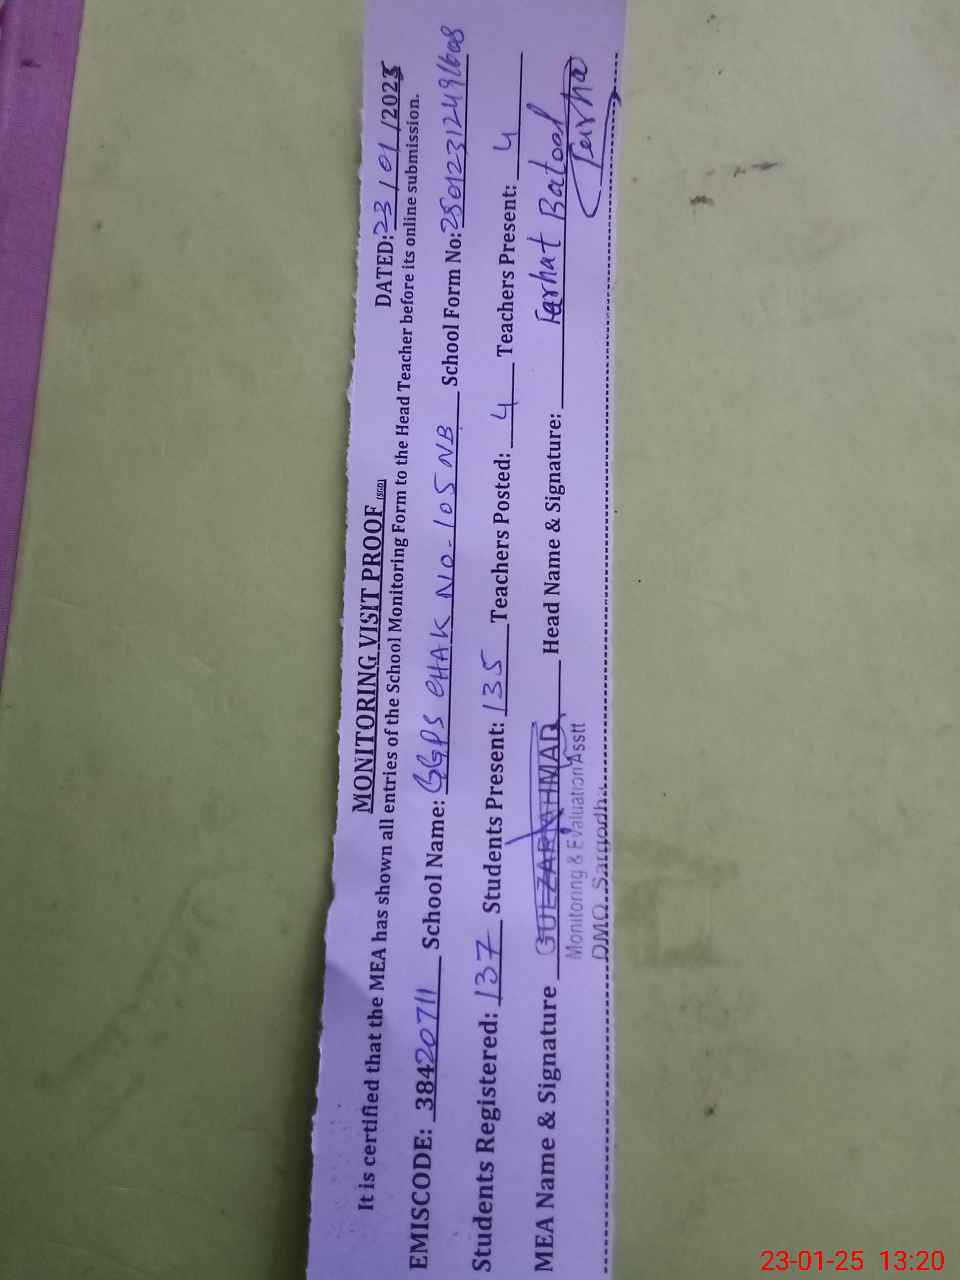 MONITORING VISIT PROOF (SGD)
DATED: 23/01/2025
It is certified that the MEA has shown all entries of the School Monitoring Form to the Head Teacher before its online submission.
EMISCODE: 38420711 School Name: GGPS CHAK NO-105 NB School Form No: 25012312491608
Students Registered: 137 Students Present: 135 Teachers Posted: 4 Teachers Present: 4
MEA Name & Signature GULZAR AHMAD Head Name & Signature: Farhat Batool
Monitoring & Evaluation Asstt Farha
DMO Sargodha
23-01-25 13:20